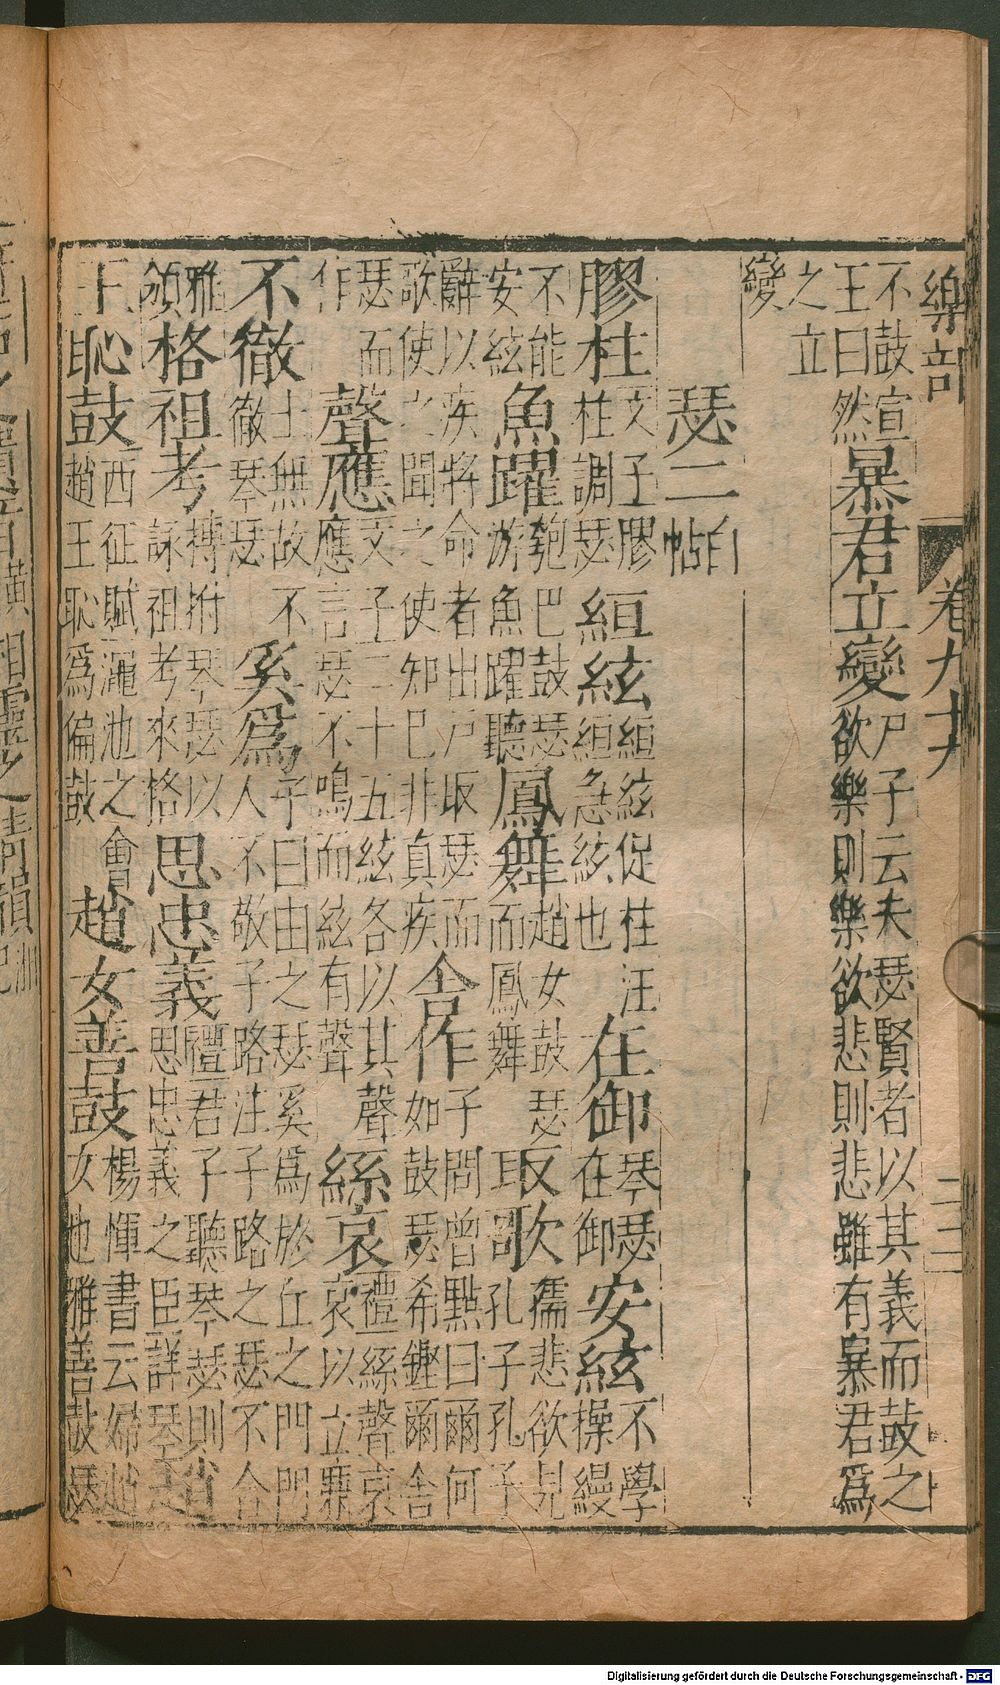 樂部 卷九十六 二二
不鼓宣
王曰然
暴君立變
尸子云夫瑟賢者以其義而鼓之
欲樂則樂欲悲則悲雖有暴君爲
之立
變
瑟二
白
帖
膠柱
文子膠
柱調瑟
絙絃
絙絃促柱汪
絙急絃也
在御
琴瑟
在御
安絃
不學
操縵
不能
安絃
魚躍
匏巴鼓瑟
游魚躍聽
鳳舞
趙女鼓瑟
而鳳舞
取歌
孺悲欲見
孔子孔子
辭以疾將命者出戶取瑟而
歌使之聞之使知巳非真疾
舍作
子問曾點曰爾何
如鼓瑟希鏗爾舍
瑟而
作
聲應
文子二十五絃各以其聲
應言瑟不鳴而絃有聲
絲哀
禮絲聲哀
哀以立亷
不徹
士無故不
徹琴瑟
奚爲
子曰由之瑟奚爲於丘之門門
人不敬子路注子路之瑟不合
雅
頌
格祖考
搏拊琴瑟以
詠祖考來格
思忠義
禮君子聽琴瑟則
思忠義之臣詳琴
王恥鼓
西征賦澠池之會
趙王恥爲偏鼓
趙女善鼓
楊惲書云婦趙
女也雅善鼓瑟
Digitalisierung gefördert durch die Deutsche Forschungsgemeinschaft - DFG